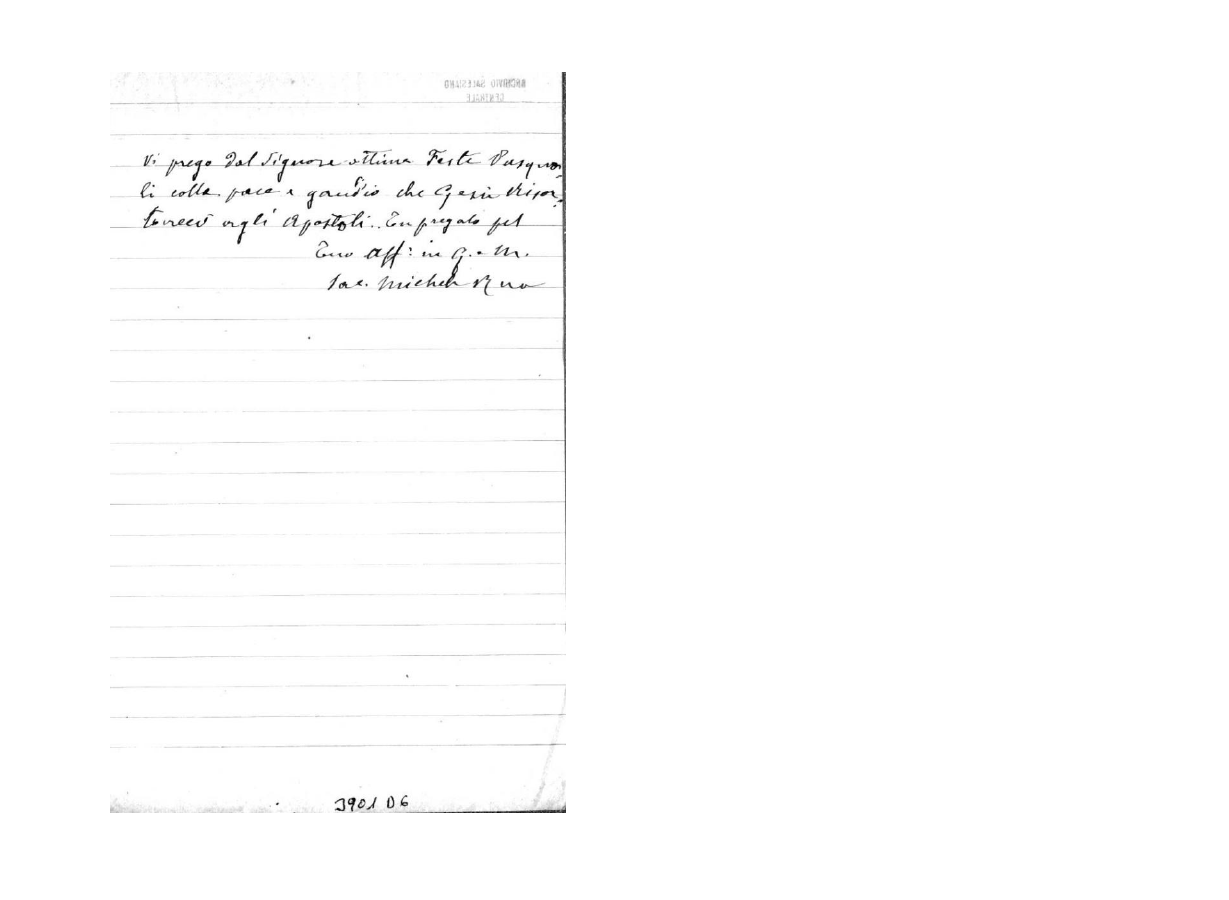 ARCHIVIO SALESIANO
CENTRALE
Vi prego dal Signore ottime Feste Pasqua-
li colla pace e gaudio che Gesù Risor-
to recò agli Apostoli. Tu prega pel
Tuo aff: in G. e M.
Sac. Michele Rua
3901 D6